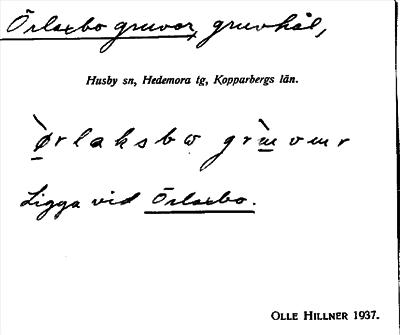 Örlaxbo gruvor, gruvhål,
Husby sn, Hedemora tg, Kopparbergs län.
ø̱̀rlaksbω grɯ̱̀vɯr
Ligga vid Örlaxbo.
OLLE HILLNER 1937.